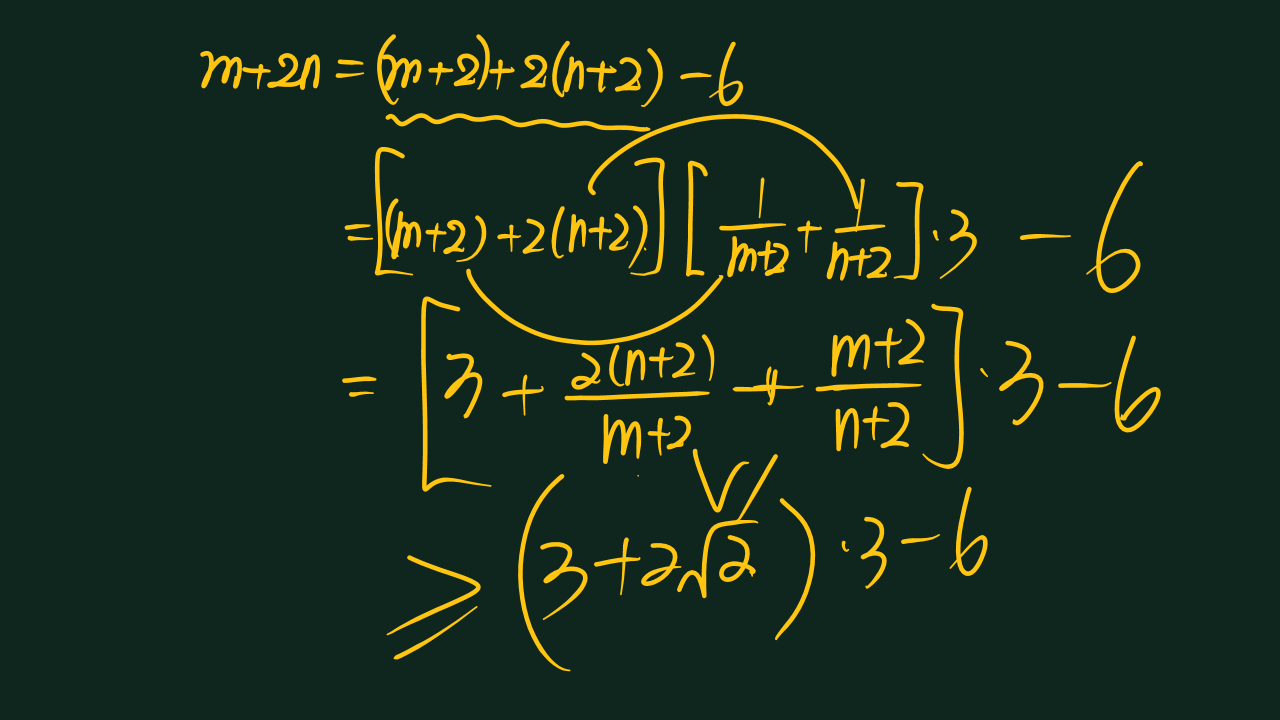 m+2n = (m+2)+2(n+2)-6
= [(m+2)+2(n+2)] [1/(m+2) + 1/(n+2)]·3 - 6
= [3 + 2(n+2)/(m+2) + (m+2)/(n+2)]·3 - 6
≥ (3+2√2)·3-6